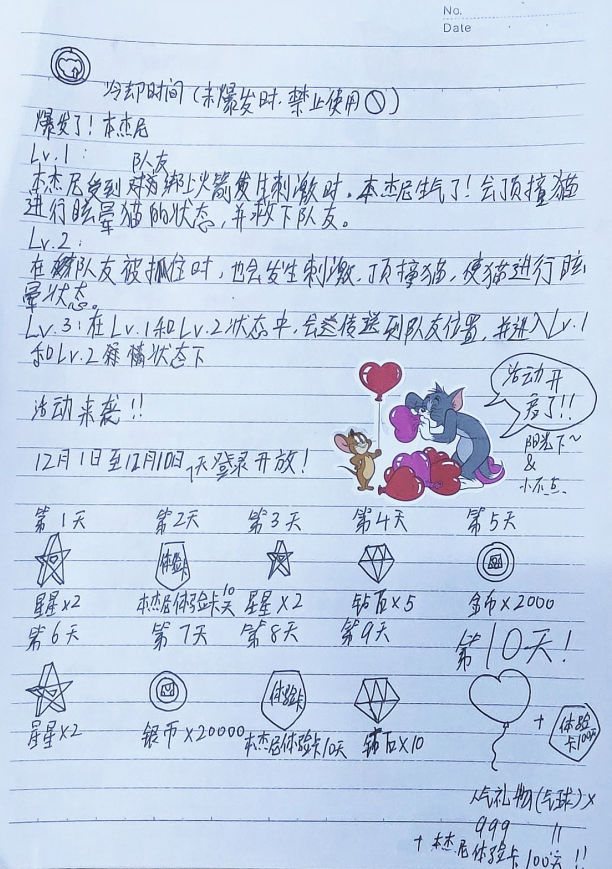 No.
Date
冷却时间(未爆发时,禁止使用)
爆发了!本杰尼
Lv.1:
队友
本杰尼受到对方绑上火箭发生刺激时,本杰尼生气了!会顶撞猫
进行眩晕猫的状态,并救下队友。
Lv.2:
在队友被抓住时,也会发生刺激,顶撞猫,使猫进行眩
晕状态。
Lv.3:在Lv.1和Lv.2状态中,会传送到队友位置,并进入Lv.1
和Lv.2 状态下
活动来袭!!
活动开
了!!
阳光下~
&
小不点
12月1日至12月10日 登录开放!
第1天 第2天 第3天 第4天 第5天
体验卡
星星×2 本杰尼体验卡10天 星星×2 钻石×5 金币×2000
第6天 第7天 第8天 第9天 第10天!
体验卡
+ 体验
卡100天
星星×2 银币×20000 本杰尼体验卡10天 钻石×10
人气礼物(气球)×
999
+ 本杰尼体验卡100天!!